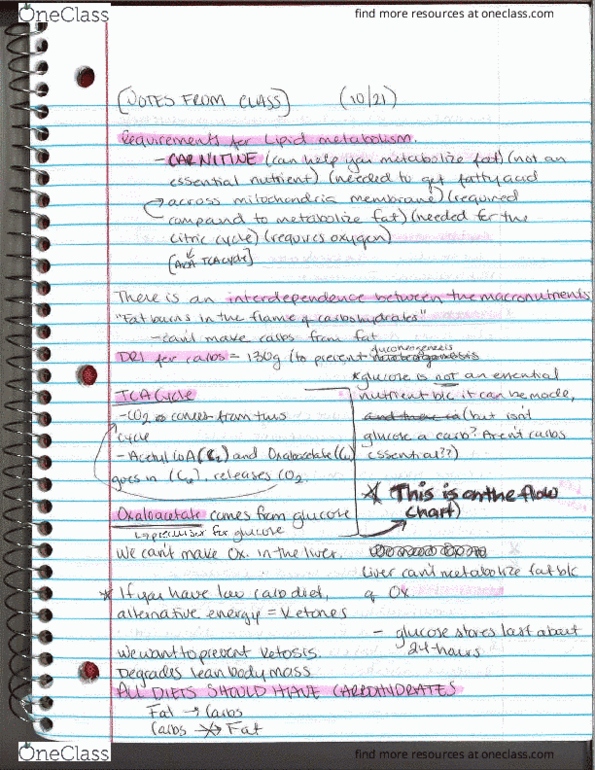 OneClass
find more resources at oneclass.com
[NOTES FROM CLASS] (10/21)
Requirements for Lipid metabolism.
- CARNITINE (can help you metabolize fat) (not an
essential nutrient) (needed to get fatty acid
across mitochondria membrane) (required
compound to metabolize fat) (needed for the
citric cycle) (requires oxygen)
[AKA TCA cycle]
There is an interdependence between the macronutrients
"Fat burns in the flame of carbohydrates"
- can't make carbs from fat
gluconeogenesis
DRI for carbs = 130g (to prevent
*glucose is not an essential
nutrient b/c it can be made,
(but isn't
glucose a carb? Aren't carbs
essential??)
TCA Cycle
- CO2 comes from this
cycle
- Acetyl CoA (C2) and Oxaloacetate (C4)
goes in (C6), releases CO2.
* This is on the flow
chart)
Oxaloacetate comes from glucose
↳ precursor for glucose
We can't make Ox. in the liver.
Liver can't metabolize fat b/c
of Ox
* If you have low carb diet,
alternative energy = Ketones
- glucose stores last about
24-hours
We want to prevent ketosis.
Degrades lean body mass
ALL DIETS SHOULD HAVE CARBOHYDRATES
Fat → Carbs
Carbs -X-> Fat
OneClass
find more resources at oneclass.com